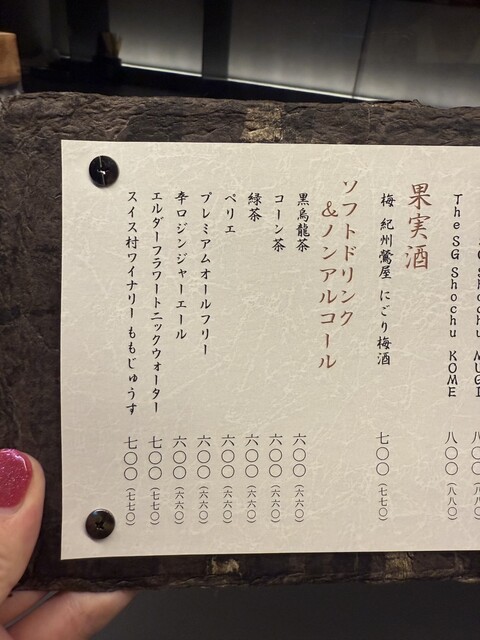 SG Shochu MUGI 八〇〇（八八〇）
The SG Shochu KOME 八〇〇（八八〇）
果実酒
梅 紀州鶯屋 にごり梅酒 七〇〇（七七〇）
ソフトドリンク
＆ノンアルコール
黒烏龍茶 六〇〇（六六〇）
コーン茶 六〇〇（六六〇）
緑茶 六〇〇（六六〇）
ペリエ 六〇〇（六六〇）
プレミアムオールフリー 六〇〇（六六〇）
辛口ジンジャーエール 六〇〇（六六〇）
エルダーフラワートニックウォーター 七〇〇（七七〇）
スイス村ワイナリー ももじゅうす 七〇〇（七七〇）